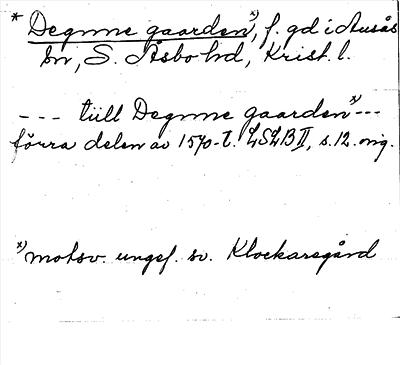 * Degnne gaarden x), f. gd i Ausås
sn, S. Åsbo hd, Krist. l.
--- tiill Degnne gaarden x)---
förra delen av 1570-t. LSLB II, s. 12. orig.
x) motsv. ungef. sv. Klockaregård